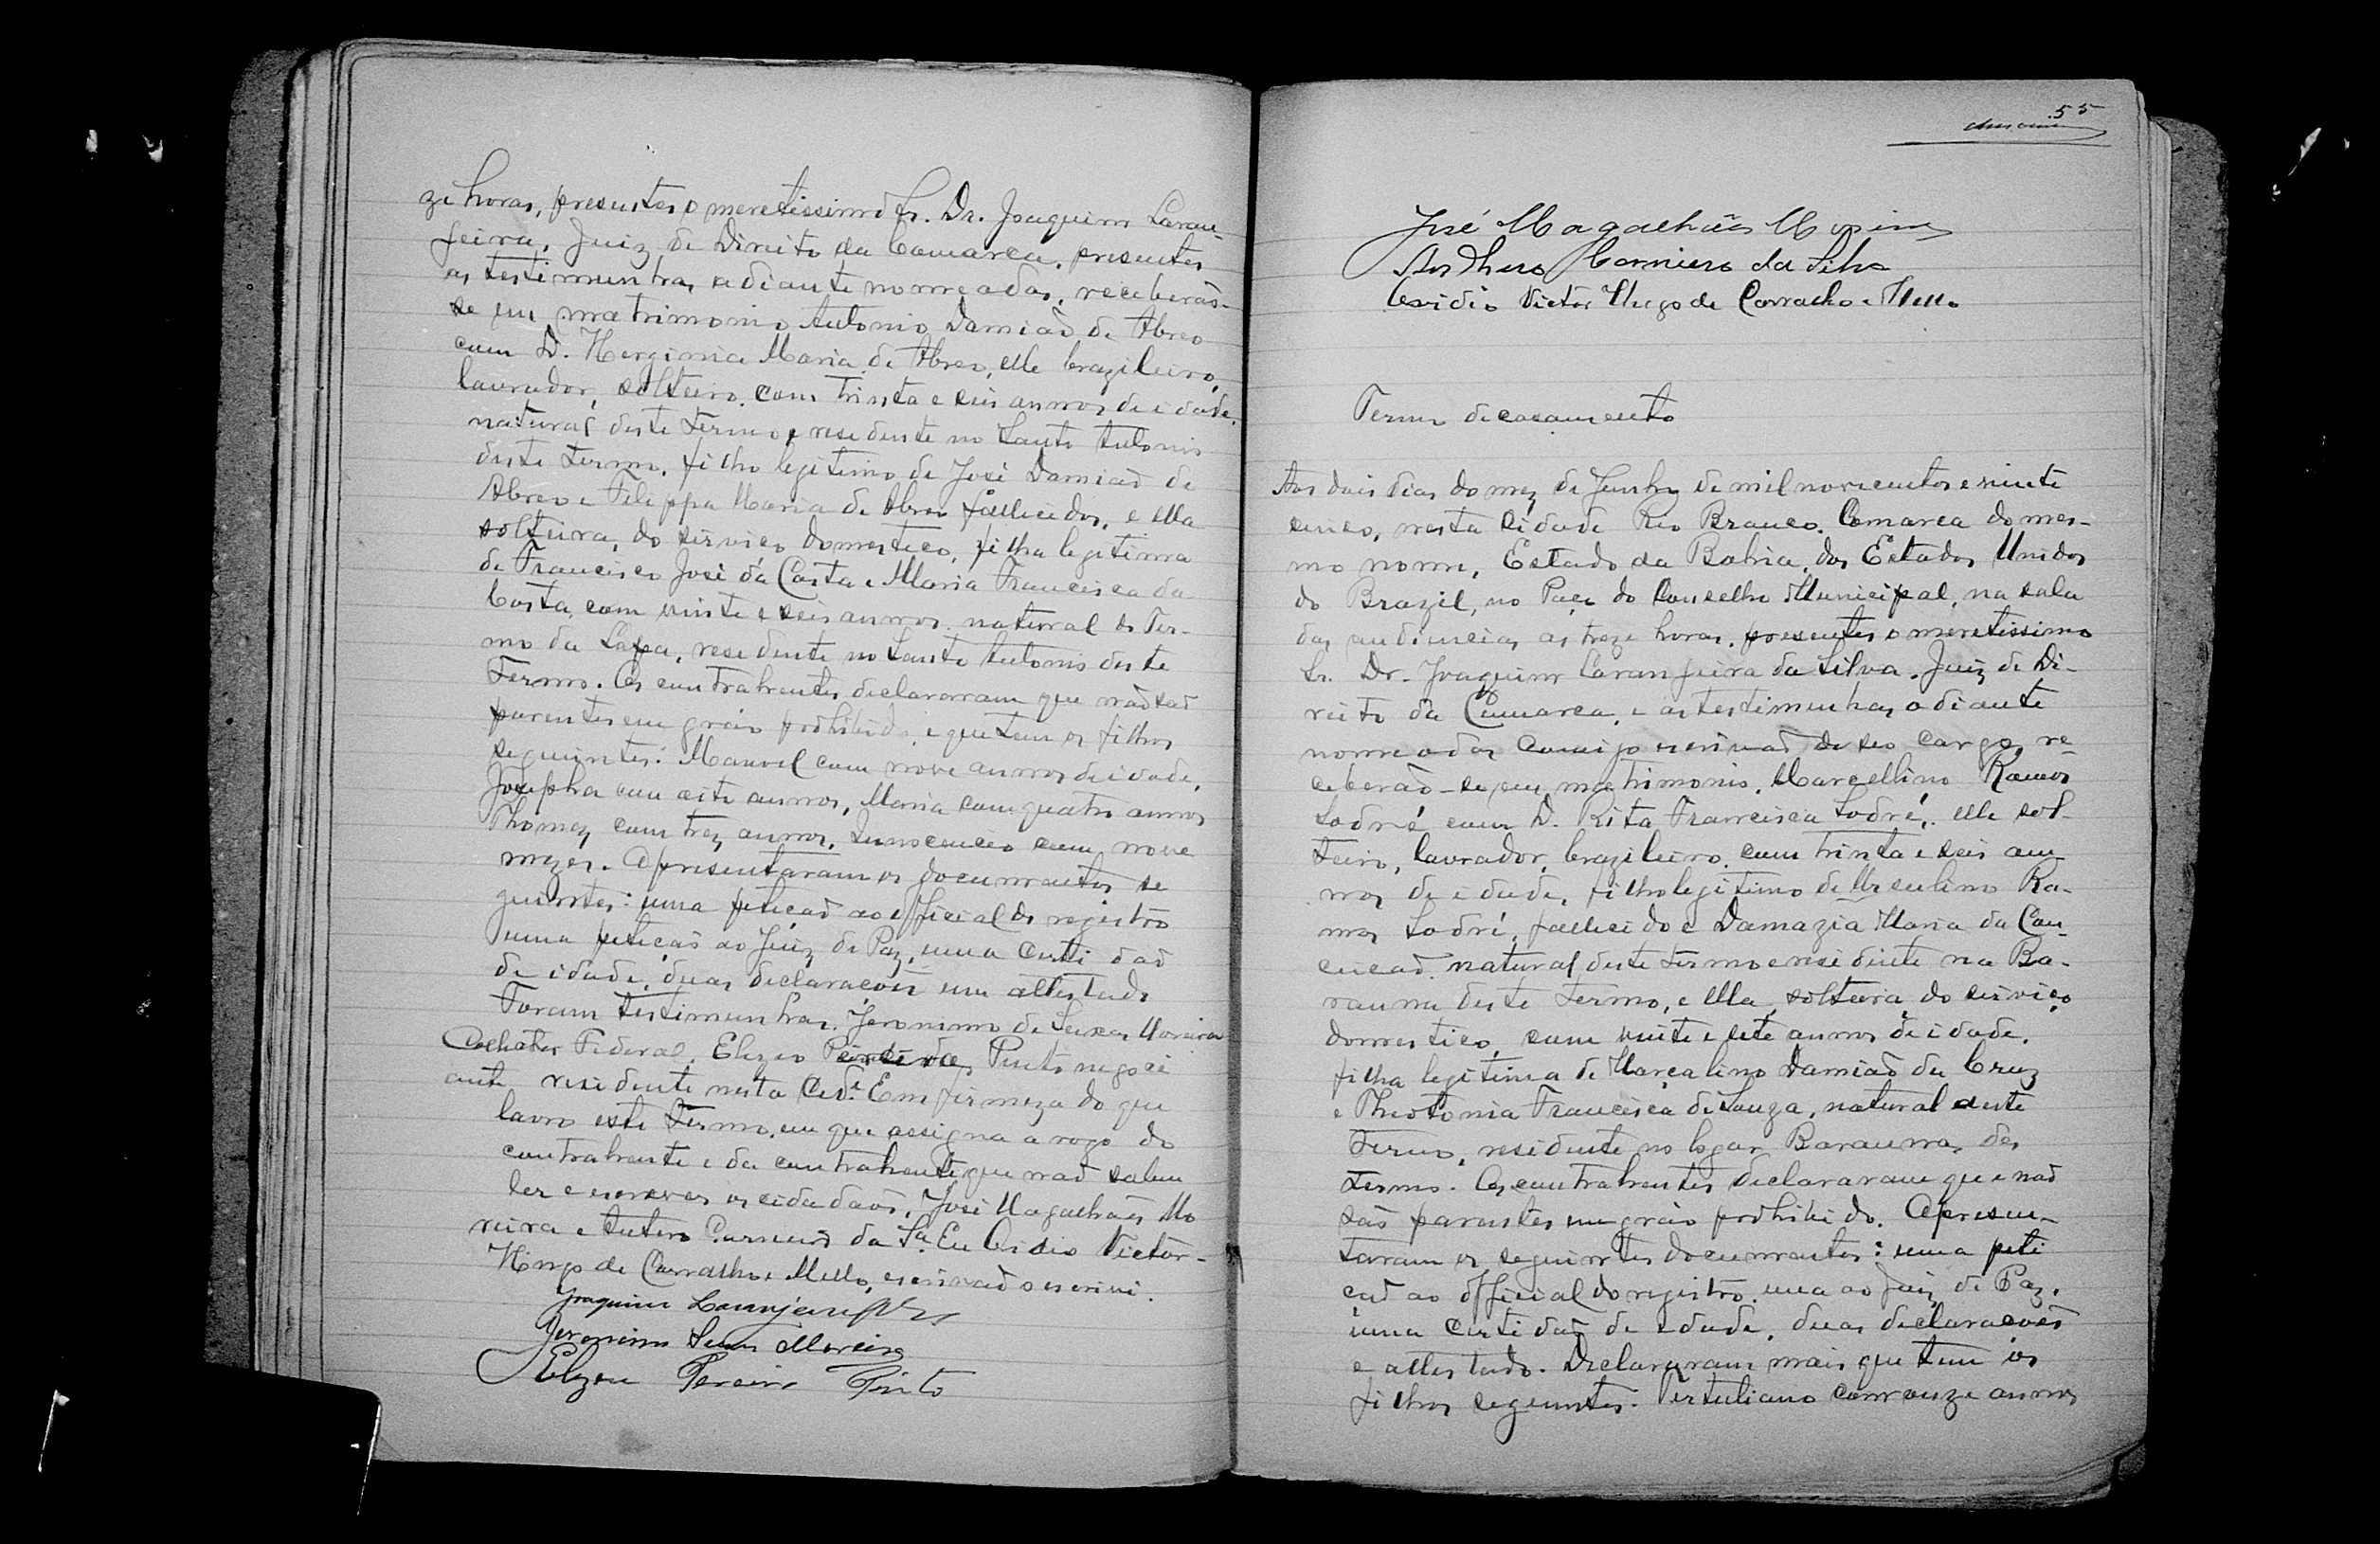 ze horas, presentes o meretissimo Sr. Dr. Joaquim Laran-
jeira, Juiz de Direito da Comarca, presentes
as testimunhas adiante nomeadas, receberão-
se em matrimonio Antonio Damião de Abreo
com D. Herginia Maria de Abreo, elle brazileiro,
lavrador, solteiro, com trinta e seis annos de idade,
natural deste Termo e residente no Santo Antonio
deste Termo, filho legitimo de José Damião de
Abreo e Felippa Maria de Abreo fallecidos, e ella
solteira, do serviço domestico, filha legitima
de Francisco José da Costa e Maria Francisca da
Costa, com vinte e seis annos, natural do Ter-
mo da Lapa, residente no Santo Antonio deste
Termo. Os contrahentes declararam que não são
parentes em gráo prohibido, e que tem os filhos
seguintes: Manoel com nove annos de idade,
Josepha com oito annos, Maria com quatro annos
Thomez com trez annos, Innocencio com nove
mezes. Apresentaram os documentos se
guintes: uma petição ao official do registro
uma petição ao Juiz de Paz, uma certidão
de idade, duas declarações um attestado
Foram testimunhas. Jeronimo de Moreira
Collector Federal, Elyzeo Pinto negoci
ante residente nesta Cide. Em firmeza do que
lavro este Termo, em que assigna a rogo do
contrahente e da contrahente que não sabem
ler e escrever os cidadãos, José Magalhães Mo
reira e Antero Carneiro da Sa. Eu Ovidio Victor-
Hugo de Carvalho e Mello, escrivão o escrivi.
Joaquim Laranjeira
Jeronimo Moreira
Elyzeu Pereira Pinto
55
José Magalhães Moreira
Anthero Carneiro da Silva
Ovidio Victor Hugo de Carvalho e Mello
Termo de casamento
Aos dois dias do mez de Junho de mil novecentos e vinte
cinco, nesta cidade Rio Branco, Comarca do mes-
mo nome, Estado da Bahia, dos Estados Unidos
do Brazil, no Paço do Conselho Municipal, na sala
das audiencias as treze horas, presentes o meretissimo
Sr. Dr. Joaquim Laranjeira da Silva, Juiz de Di-
reito da Comarca, e as testimunhas adiante
nomeadas comigo escrivão de seo cargo, re-
ceberão-se em matrimonio, Marcellino Ramos
Sodré com D. Rita Francisca Sodré, elle sol-
teiro, lavrador, brazileiro, com trinta e seis an
nos de idade, filho legitimo de Urculino Ra-
mos Sodré, fallecido e Damazia Maria da Con-
ceição, natural deste termo e residente na Ba-
rauna deste Termo, e ella, solteira, do serviço
domestico, com vinte e sete annos de idade,
filha legitima de Marçalino Damião da Cruz
e Theotonia Francisca de Souza, natural deste
Termo, residente no logar Baraunas des
Termo. Os contrahentes declararam que não
são parentes em gráo prohibido. Apresen-
taram os seguintes documentos: uma peti
ção ao official do registro, uma ao Juiz de Paz,
uma certidão de idade, duas declarações
e attestado. Declararam mais que tem os
filhos seguintes. Tertuliano com onze annos